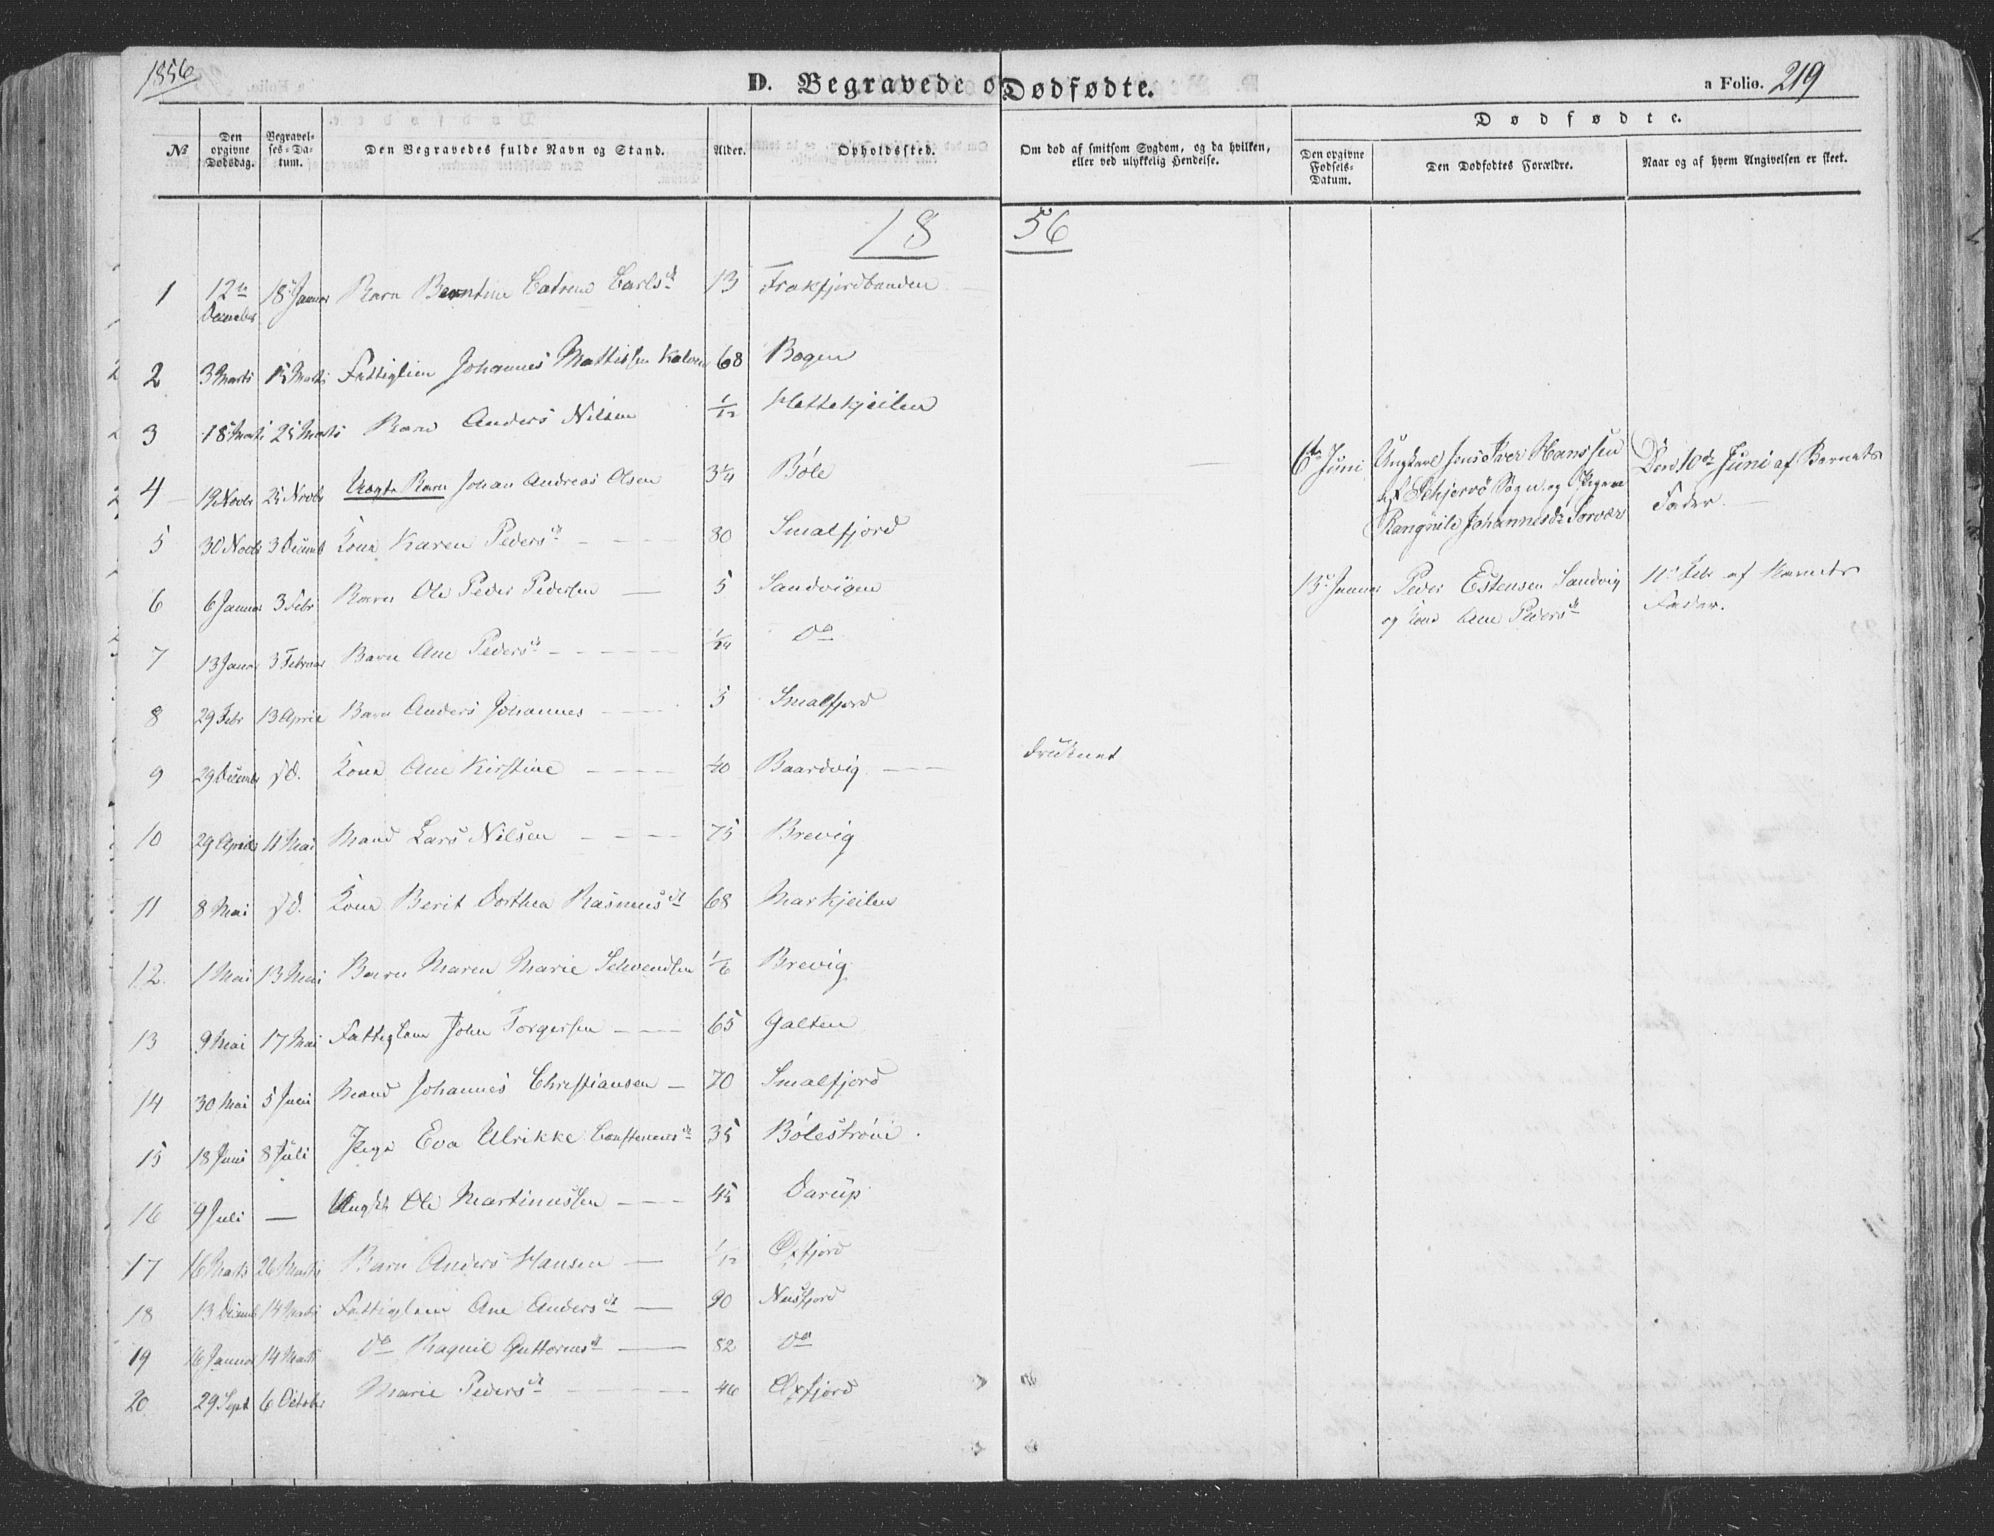 1856
D. Begravede o Dødfødte.
a Folio. 219
Dødfødte.
No
Den orgivne Dødsdag.
Begravelses-Datum.
Den Begravedes fulde Navn og Stand.
Alder.
Opholdssted.
Om død af smitsom Sygdom, og da hvilken, eller ved ulykkelig Hendelse.
Den orgivne Fødsels-Datum.
Den Dødfødtes Forældre.
Naar og af hvem Angivelsen er skeet.
18 56
1 12te Decmbr 18 Januar Barn Berntine Catrine Carlsdt 13
2 3 Marts 15 Marts Fattiglem Johannes Mathissen 68 Bogen
3 18 Marts 25 Marts Barn Anders Nilsen 1/12 Hettekjeilen
4 19 Novbr 25 Novbr Uægte Barn Johan Andreas Olsen 3/4 Bøle
5 30 Novbr 3 Decmb Kone Karen Pedersdt 80 Smalfjord
6 6 Januar 3 Febr Barn Ole Peder Pedersen 5 Sandvigen
7 13 Januar 3 Februar Barn Ane Pedersdt 1/24 Do
8 29 Febr 13 April Barn Anders Johannes 5 Smalfjord
9 29 Decmbr s.D. Kone Ane Kirstine 40 Baardvig druknet
10 29 April 11 Mai Mand Lars Nilsen 75 Brevig
11 8 Mai s.D. Kone Berit Dorthea Rasmusdt 68 Markjeilen
12 1 Mai 13 Mai Barn Maren Marie 1/6 Brevig
13 9 Mai 17 Mai Fattiglem John Torgersen 65 Galten
14 30 Mai 5 Juni Mand Johannes Christiansen 70 Smalfjord
15 18 Juni 8 Juli Pige Eva Ulrikke 35 Bølestrøm
16 9 Juli — Ungk Ole Martinussen 45 Darup
17 16 Marts 26 Marts Barn Anders Hansen 1/12 Øxfjord
18 13 Decmb 14 Marts Fattiglem Ane Andersdt 90 Nusfjord
19 16 Januar 14 Marts Do Ragnil Guttormsdt 82 Do
20 29 Sept 6 October Marie Pedersdt 46 Øxfjord
6te Juni Ungkarl Jens Iver Hanssen
af Skjervø Sogn og Pigen
Rangnile Johannesdr Sørvær
Den 10de Juni af Barnets
Fader.
15 Januar Peder Estensen Sandvig
og Kone Ane Pedersdt
11 Febr af Barnets
Fader.